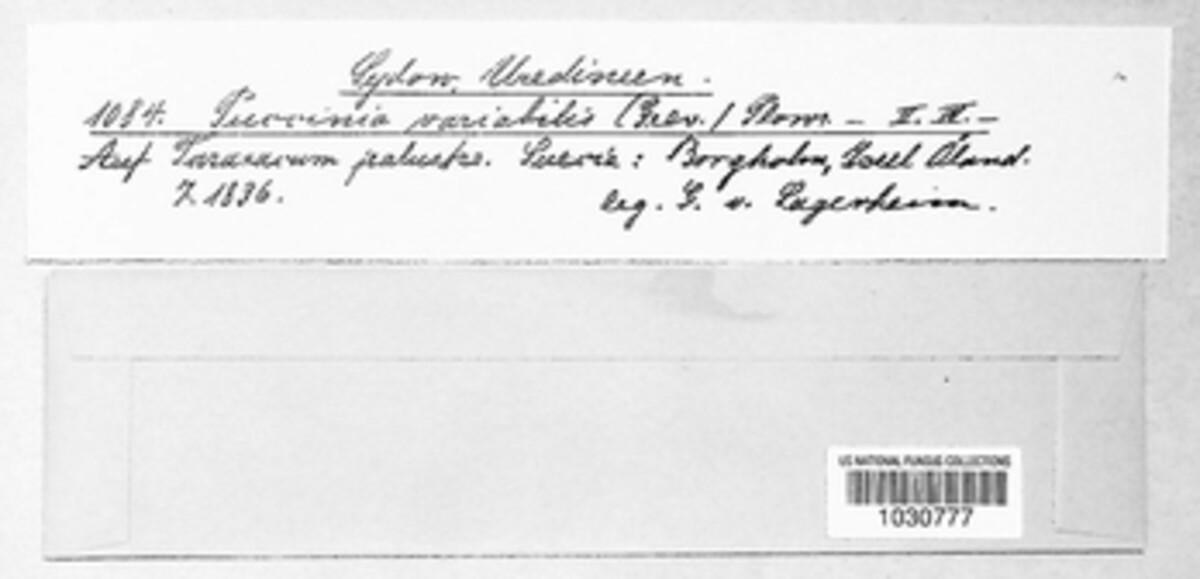 Sydow, Uredineen.
1084. Puccinia variabilis (Grev.) Plowr. – II. III. –
Auf Taraxacum palustre. Suecia: Borgholm, Insel Öland.
7. 1896. leg. G. v. Lagerheim.
US NATIONAL FUNGUS COLLECTIONS
1030777